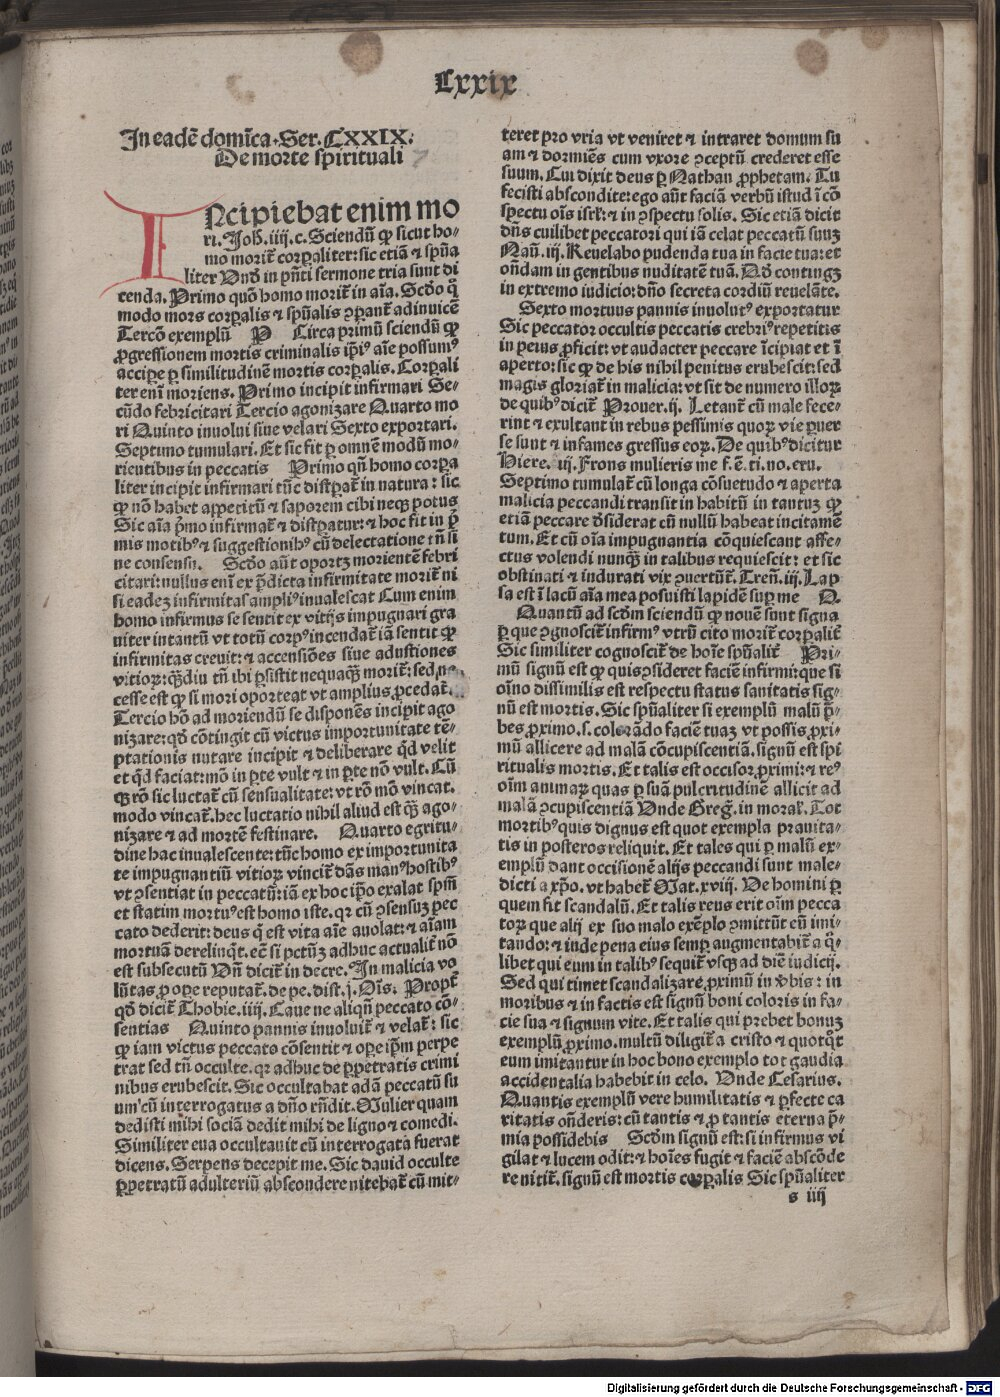 Lxxix
In eadē domīca. Ser. CXXIX.
De morte spirituali
INcipiebat enim mo
ri. Joh̄. iiij. c. Sciendū ꝙ sicut ho-
mo morit̄ corꝑaliter: sic etiā ⁊ spūa
liter Vnd̄ in p̄nti sermone tria sunt di
cenda. Primo quō homo morit̄ in aīa. Scd̄o q̄
modo mors corꝑalis ⁊ spūalis ꝯparant̄ adinuicē
Terciō exemplū P Circa primū sciendū ꝙ
ꝓgressionem mortis criminalis ip̄iꝰ aīe possumꝰ
accipe ꝑ similitudinē mortis corꝑalis. Corꝑali
ter enī moriens. Primo incipit infirmari Se-
cūdo febricitari Tercio agonizare Quarto mo
ri Quinto inuolui siue velari Sexto exportari.
Septimo tumulari. Et sic fit ꝑ omnē modū mo-
rientibus in peccatis Primo qn̄ homo corꝑa
liter incipit infirmari tūc distꝑat̄ in natura: sic
ꝙ nō habet appetitū ⁊ saporem cibi neqꝫ potus
Sic aīa p̄mo infirmat̄ ⁊ distꝑatur: ⁊ hoc fit in p̄
mis motibꝰ ⁊ suggestionibꝰ cū delectatione tn̄ si
ne consensu. Scd̄o aūt oportꝫ morientē febri
citari: nullus enī ex p̄dicta infirmitate morit̄ ni
si eadeꝫ infirmitas ampliꝰ inualescat Cum enim
homo infirmus se sentit ex vitijs impugnari gra
uiter intantū vt totū corpꝰ incendat̄ iā sentit ꝙ
infirmitas creuit: ⁊ accensiōes siue adustiones
vitioꝝ: qͣ̄diu tn̄ ibi ꝑsistit nequaqͣ̄ morit̄: sed ne
cesse est ꝙ si mori oporteat vt amplius ꝓcedat̄.
Tercio hō ad moriendū se disponēs incipit ago
nizare: qd̄ cōtingit cū victus importunitate tē-
ptationis nutare incipit ⁊ deliberare qͥd velit
et qͥd faciat: mō in ꝑte vult ⁊ in ꝑte nō vult. Cū
qͣ̄ rō sic luctat̄ cū sensualitate: vt rō mō vincat.
modo vincat̄. hec luctatio nihil aliud est qͣ̄ ago-
nizare ⁊ ad mortē festinare. Quarto egritu-
dine hac inualescente: tūc homo ex importunita
te impugnantiū vitioꝝ vincit̄ dās manꝰ hostibꝰ
vt ꝯsentiat in peccatū: iā ex hoc ip̄o exalat sp̄m
et statim mortuꝰ est homo iste. qꝛ cū ꝯsensuꝫ pec
cato dederit: deus q̄ est vita aīe auolat: ⁊ aīam
mortuā derelinqͥt. ec̄ si pctūꝫ adhuc actualit̄ nō
est subsecutū Vn̄ dicit̄ in decre. In malicia vo
lūtas ꝓ ope reputat̄. de pe. dist. j. Oīs. Propt̄
qd̄ dicit̄ Thobie. iiij. Caue ne aliqn̄ peccato cō-
sentias Quinto pannis inuoluit̄ ⁊ velat̄: sic
ꝙ iam victus peccato cōsentit ⁊ oꝑe ip̄m perpe
trat sed tn̄ occulte. qꝛ adhuc de ꝑpetratis crimi
nibus erubescit. Sic occultabat adā peccatū su
um: cū interrogatus a dn̄o rn̄dit. Mulier quam
dedisti mihi sociā dedit mihi de ligno ⁊ comedi.
Similiter eua occultauit cū interrogata fuerat
dicens. Serpens decepit me. Sic dauid occulte
ꝑpetratū adulteriū abscondere nitebat̄ cū mit-
teret pro vria vt veniret ⁊ intraret domum su
am ⁊ dormiēs cum vxore ꝯceptū crederet esse
suum. Cui dixit deus ꝑ Nathan ꝓphetam. Tu
fecisti abscondite: ego aūt faciā verbū istud ī cō
spectu oīs isrl̄: ⁊ in ꝯspectu solis. Sic etiā dicit
dn̄s cuilibet peccatori qui iā celat peccatū suuꝫ
Naū. iij. Reuelabo pudenda tua in facie tua: et
on̄dam in gentibus nuditatē tuā. Qd̄ contingꝫ
in extremo iudicio: dn̄o secreta cordiū reuelāte.
Sexto mortuus pannis inuolutꝰ exportatur
Sic peccator occultis peccatis crebriꝰ repetitis
in peius ꝓficit: vt audacter peccare īcipiat et ī
aperto: sic ꝙ de his nihil penitus erubescit: sed
magis gloriat̄ in malicia: vt sit de numero illoꝝ
de quibꝰ dicit̄ Prouer. ij. Letant̄ cū male fece-
rint ⁊ exultant in rebus pessimis quoꝝ vie ꝑuer
se sunt ⁊ infames gressus eoꝝ. De quibꝰ dicitur
Hiere. iij. Frons mulieris me f. ē. ti. no. eru.
Septimo tumulat̄ cū longa cōsuetudo ⁊ aperta
malicia peccandi transit in habitū in tantuꝫ ꝙ
etiā peccare d̄siderat cū nullū habeat incitamē
tum. Et cū oīa impugnantia cōquiescant affe-
ctus volendi nunqͣ̄ in talibus requiescit: et sic
obstinati ⁊ indurati vix ꝯuertūt̄. Tren̄. iij. Lap
sa est ī lacū aīa mea posuisti lapidē suꝑ me Q.
Quantū ad scd̄m sciendū ꝙ nouē sunt signa
ꝑ que ꝯgnoscit̄ infirmꝰ vtrū cito morit̄ corꝑalit̄
Sic similiter cognoscit̄ de hoīe spūalit̄ Pri-
mū signū est ꝙ quis ꝯsideret faciē infirmi: que si
oīno dissimilis est respectu status sanitatis sig-
nū est mortis. Sic spūaliter si exemplū malū p̄-
bes ꝓximo. s. colorādo faciē tuaꝫ vt possis ꝓxi-
mū allicere ad malā cōcupiscentiā. signū est spi
ritualis mortis. Et talis est occisor ꝓximi: ⁊ reꝰ
oīm animaꝝ quas ꝑ suā pulcritudinē allicit ad
malā ꝯcupiscentiā Vnde Greḡ. in moral̄. Tot
mortibꝰ quis dignus est quot exempla prauita-
tis in posteros reliquit. Et tales qui ꝑ malū ex-
emplū dant occisionē alijs peccandi sunt male-
dicti a xp̄o. vt habet̄ Mat. xviij. Ve homini ꝑ
quem fit scandalū. Et talis reus erit oīm pecca
toꝝ que alij ex suo malo exēplo ꝯmittūt cū imi-
tando: ⁊ inde pena eius semꝑ augmentabit̄ a q̄-
libet qui eum in talibꝰ sequit̄ vsqꝫ ad diē iudicij.
Sed qui timet scandalizare ꝓximū in v̄bis: in
moribus ⁊ in factis est signū boni coloris in fa-
cie sua ⁊ signum vite. Et talis qui prebet bonuꝫ
exemplū ꝓximo. multū diligit̄ a cristo ⁊ quotqͦt
eum imitantur in hoc bono exemplo tot gaudia
accidentalia habebit in celo. Vnde Cesarius.
Quantis exemplū vere humilitatis ⁊ ꝑfecte ca
ritatis on̄deris: cū tantis ⁊ ꝓ tantis eterna p̄-
mia possidebis Scd̄m signū est: si infirmus vi
gilat ⁊ lucem odit: ⁊ hoīes fugit ⁊ faciē abscōde
re nitit̄. signū est mortis corꝑalis Sic spūaliter
s iiij
Digitalisierung gefördert durch die Deutsche Forschungsgemeinschaft - DFG